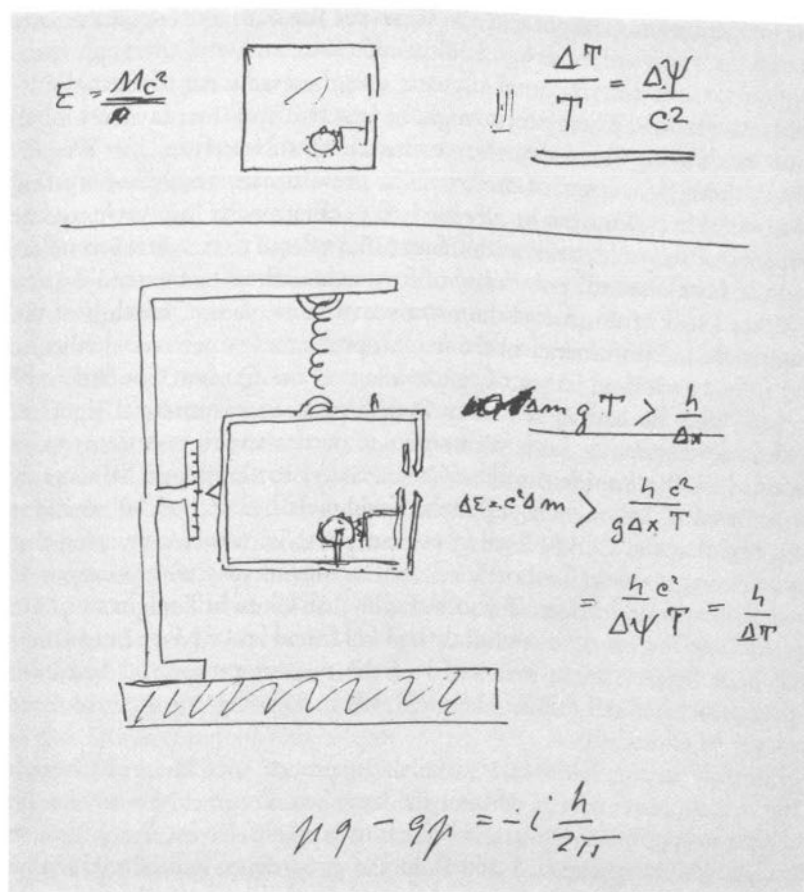 E = Mc²
!!! ΔT/T = ΔΨ/c²
Δm g T > h/Δx
ΔE = c²Δm > hc²/gΔx T
= hc²/ΔΨ T = h/ΔT
pq - qp = -i h/2π